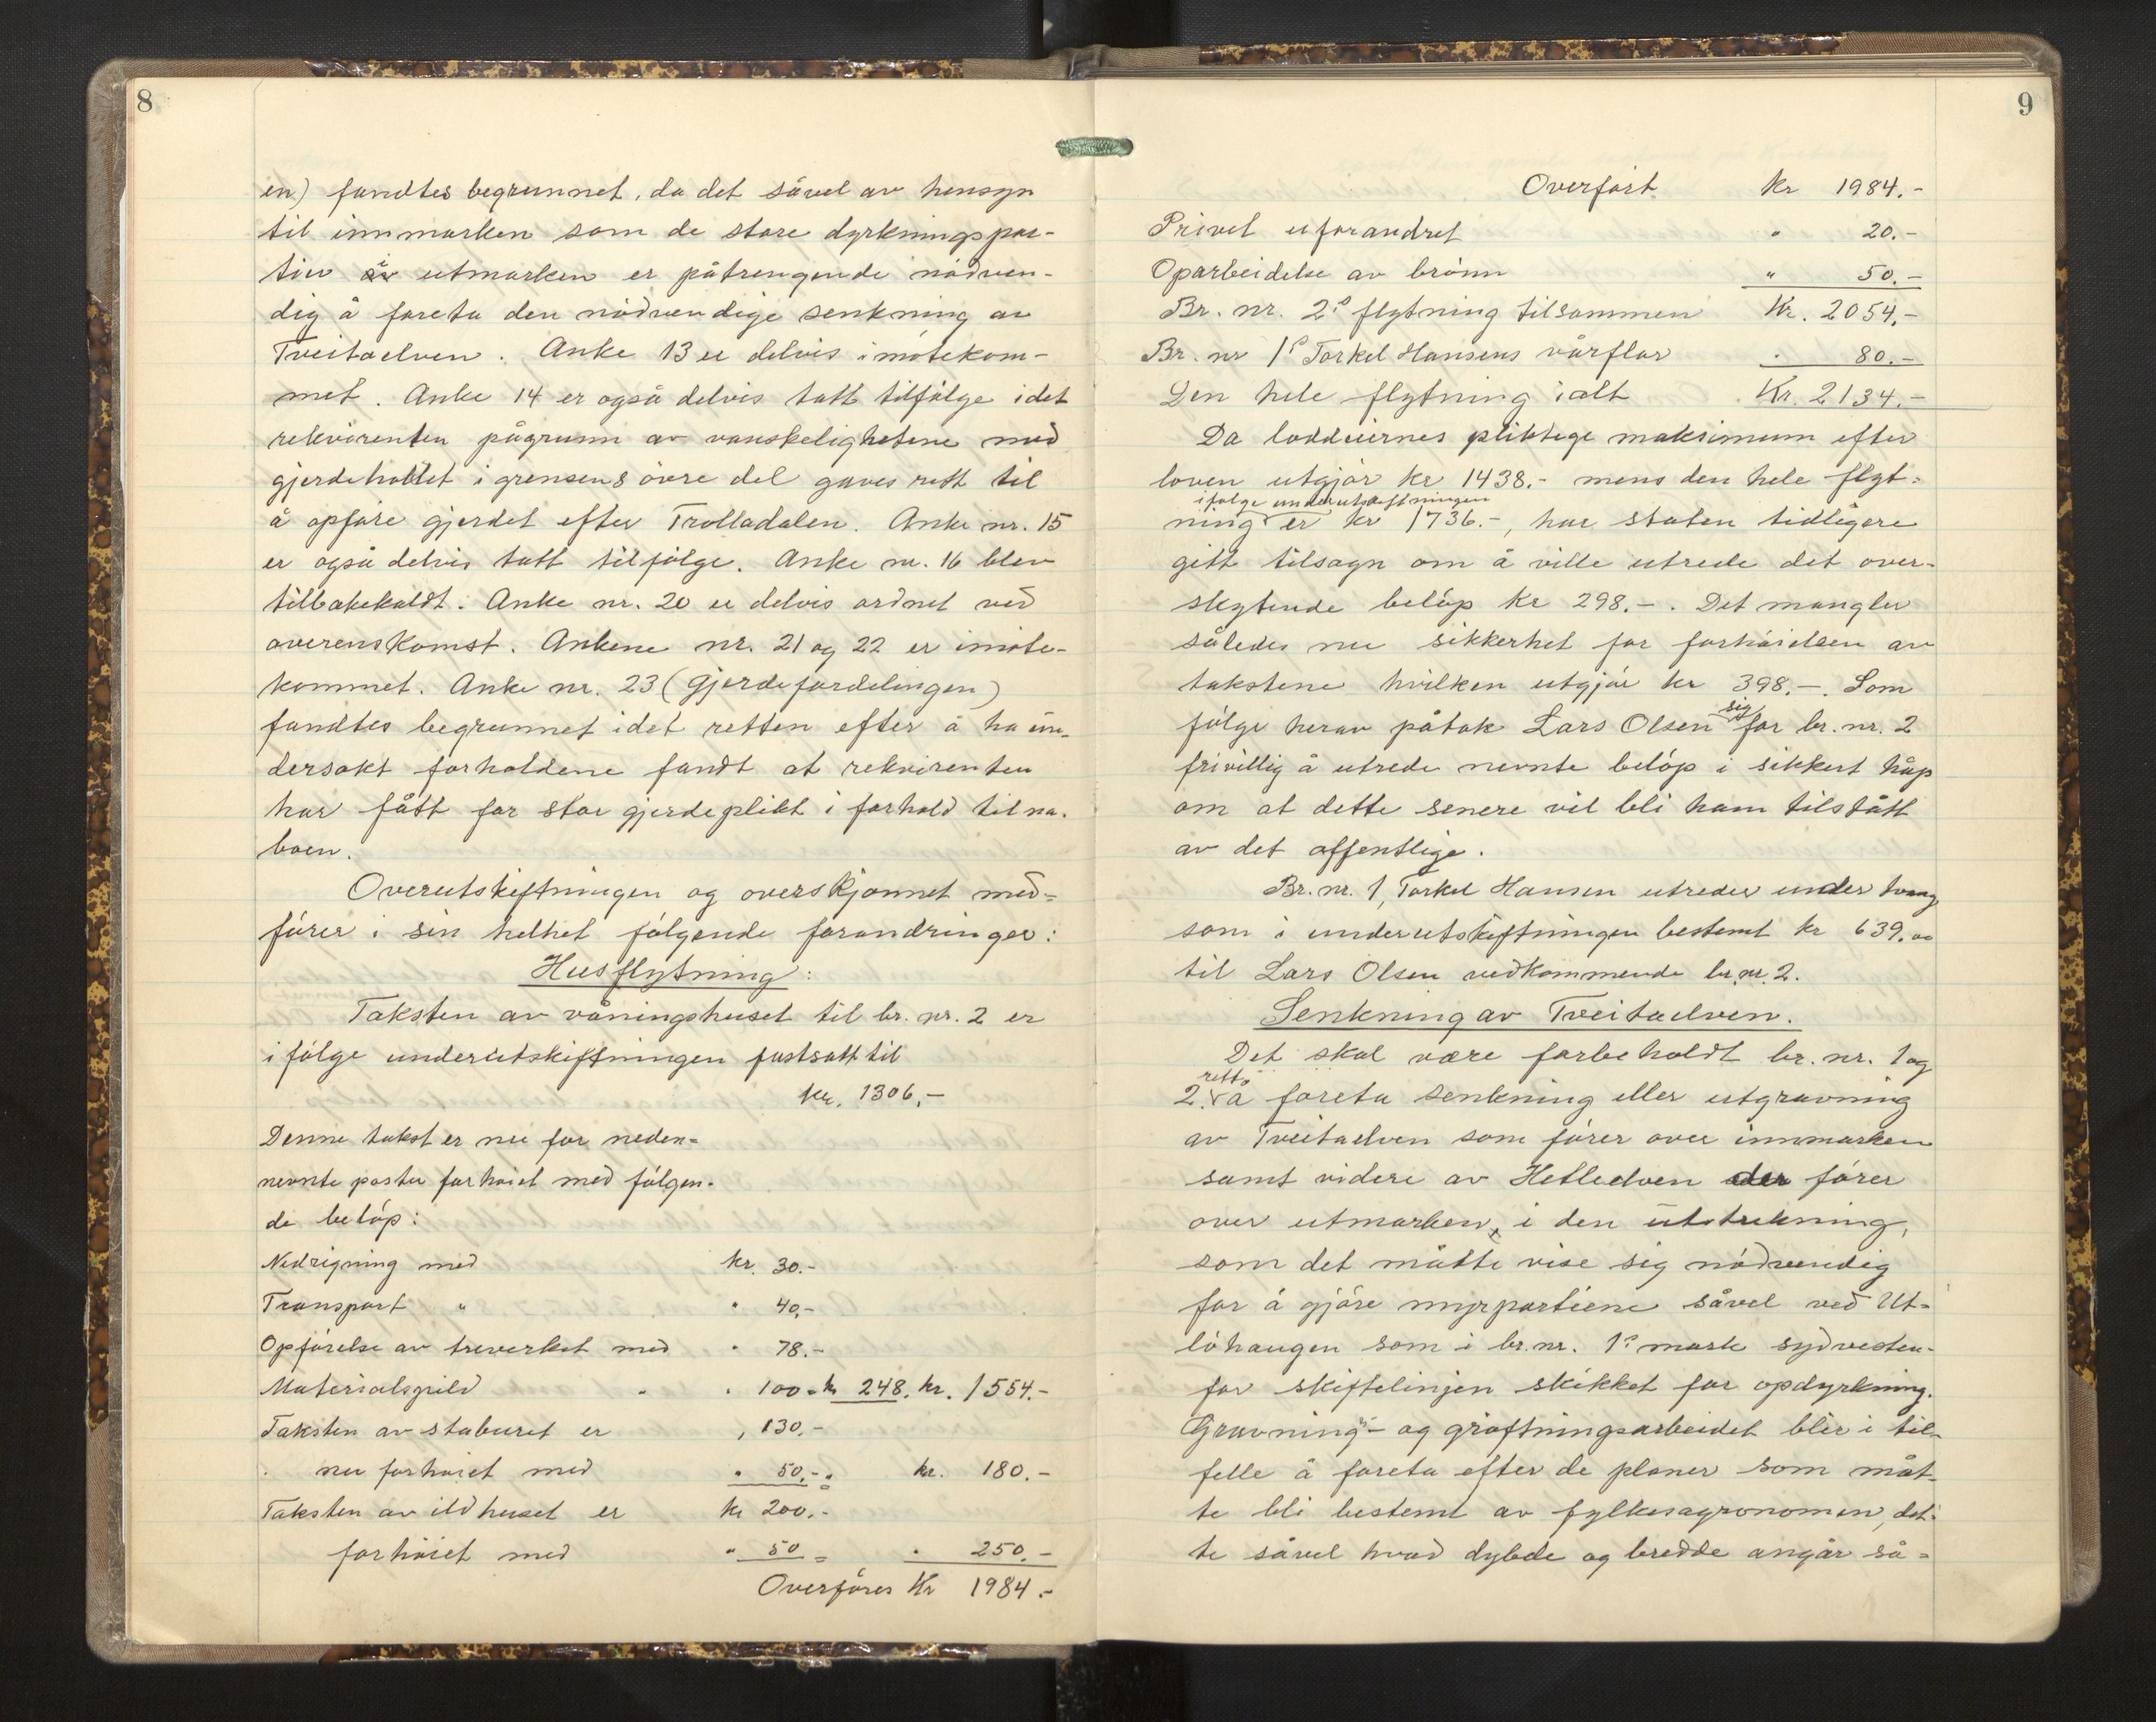 8
en) fandtes begrunnet, da det såvel av hensyn
til innmarken som de store dyrkningspar-
tier i utmarken er påtrengende nödven-
dig å foreta den nödvendige senkning av
Tveitaelven. Anke 13 er delvis imötekom-
met. Anke 14 er også delvis tatt tilfölge idet
rekvirenten pågrunn av vanskelighetene med
gjerdeholdet i grensens övre del gaves rett til
å opföre gjerdet efter Trolladalen. Anke nr. 15
er også delvis tatt tilfölge. Anke nr. 16 blev
tilbakekaldt. Anke nr. 20 er delvis ordnet ved
overenskomst. Ankene nr. 21 og 22 er imöte-
kommet. Anke nr. 23 (gjerdefordelingen)
fandtes begrunnet idet retten efter å ha un-
dersökt forholdene fandt at rekvirenten
har fått for stor gjerdeplikt i forhold til na-
boen.
Overutskiftningen og overskjønnet med-
förer i sin helhet fölgende forandringer:
Husflytning:
Taksten av våningshuset til br. nr. 2 er
i fölge underutskiftningen fastsatt til
kr. 1306,-
Denne takst er nu for neden-
nevnte poster forhöiet med fölgen-
de belöp:
Nedrigning med kr. 30.-
Transport " " 40,-
Opförelse av treverket med " 78.-
Materialspild " " 100 = kr 248. kr. 1554.-
Taksten av staburet er " 130,-
" nu forhöiet med " 50,- = kr. 180.-
Taksten av ildhuset er kr 200.-
forhöiet med " 50 = " 250.-
Overföres Kr 1984.-
9
Overfört Kr 1984.-
Privet uforandret " 20.-
Oparbeidelse av brönn " 50.-
Br. nr. 2s flytning tilsammen Kr. 2054,-
Br. nr 1s Torkel Hansens vårflor " 80.-
Den hele flytning ialt Kr. 2134.-
Da loddeiernes pliktige maksimum efter
loven utgjör kr 1438.- mens den hele flyt-
ifölge underutskiftningen
ning er kr 1736.-, har staten tidligere
gitt tilsagn om å ville utrede det over-
skytende belöp kr 298.-. Det mangler
således nu sikkerhet for forhöielsen av
takstene hvilken utgjör kr 398.-. Som
fölge herav påtok Lars Olsen sig for br. nr. 2
frivillig å utrede nevnte belöp i sikkert håp
om at dette senere vil bli ham tilstått
av det offentlige.
Br. nr. 1, Torkel Hansen utreder under tvang
som i underutskiftningen bestemt kr 639.00
til Lars Olsen vedkommende br. nr. 2.
Senkning av Tveitaelven.
Det skal være forbeholdt br. nr. 1 og
2 rett å foreta senkning eller utgravning
av Tveitaelven som förer over innmarken
samt videre av Hetleelven der förer
over utmarken, i den utstrekning,
som det måtte vise sig nödvendig
for å gjöre myrpartiene såvel ved Ut-
löhaugen som i br. nr. 1s mark sydvesten-
for skiftelinjen skikket for opdyrkning.
Gravnings- og gröftningsarbeidet blir i til-
felle å foreta efter de planer som måt-
te bli bestemt av fylkesagronomen, det-
te såvel hvad dybde og bredde angår så-